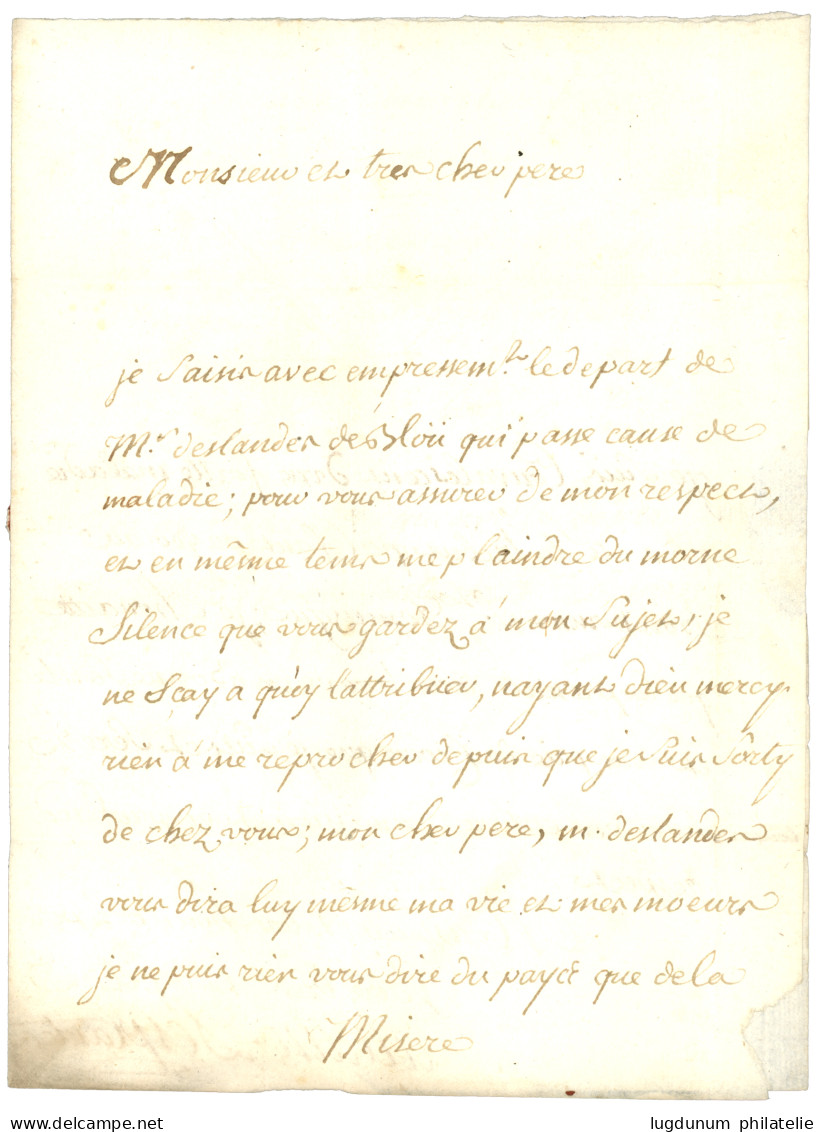 Monsieur et tres cher pere
je saisis avec empressem.t le depart de
M.r deslandes de qui passe cause de
maladie; pour vous assurer de mon respect,
et en même tems me plaindre du morne
silence que vous gardez á mon sujet, je
ne sçay a quoy lattribüer, nayant dieu mercy
rien á me reprocher depuis que je suis sorty
de chez vous; mon cher pere, m. deslandes
vous dira luy même ma vie et mes moeurs
je ne puis rien vous dire du payś que de la
Misere
Delcampe.net
lugdunum philatelie